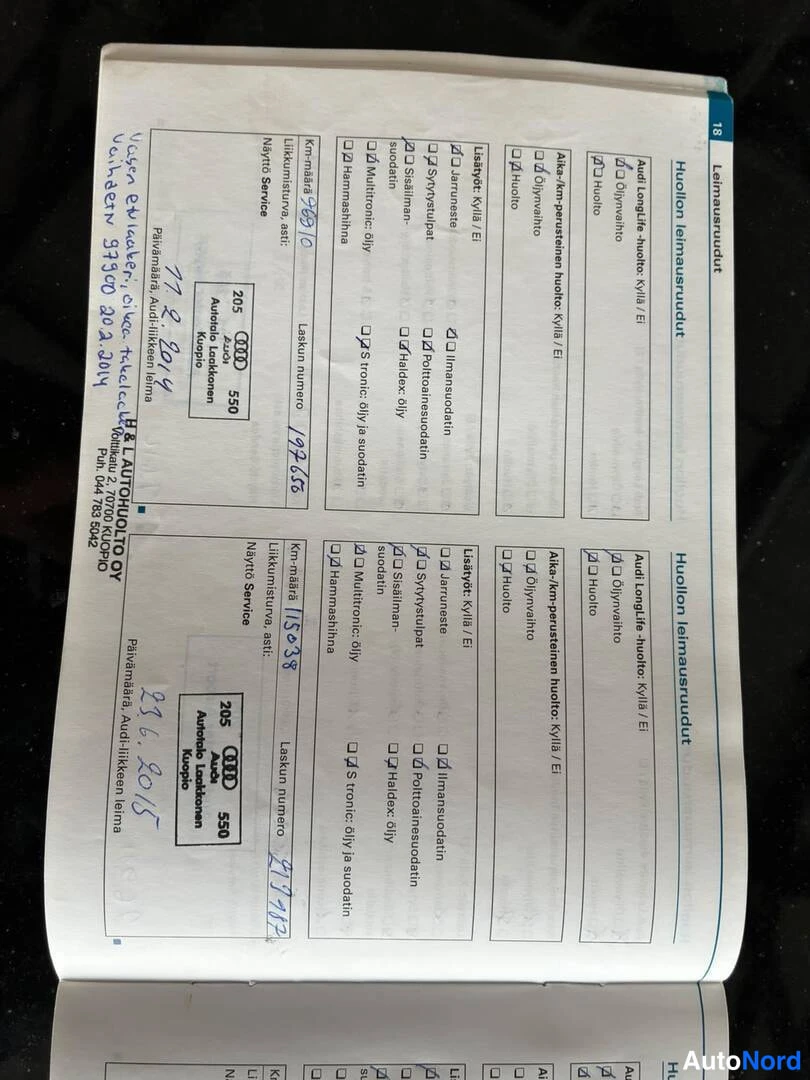 18 Leimausruudut
Huollon leimausruudut
Audi LongLife -huolto: Kyllä / Ei
Öljynvaihto
Huolto
Aika-/km-perusteinen huolto: Kyllä / Ei
Öljynvaihto
Huolto
Lisätyöt: Kyllä / Ei
Jarruneste
Ilmansuodatin
Sytytystulpat
Polttoainesuodatin
Sisäilman-
suodatin
Haldex: öljy
Multitronic: öljy
S tronic: öljy ja suodatin
Hammashihna
Km-määrä 96910
Laskun numero 197650
Liikkumisturva, asti:
Näyttö Service
205 550
Audi
Autotalo Laakkonen
Kuopio
11.2.2014
Päivämäärä, Audi-liikkeen leima
Vasen etulaakeri, oikea takalaakeri
Vaihdettu 97900 20.2.2014
H & L AUTOHUOLTO OY
Volttikatu 2, 70700 KUOPIO
Puh. 044 783 5042
Huollon leimausruudut
Audi LongLife -huolto: Kyllä / Ei
Öljynvaihto
Huolto
Aika-/km-perusteinen huolto: Kyllä / Ei
Öljynvaihto
Huolto
Lisätyöt: Kyllä / Ei
Jarruneste
Ilmansuodatin
Sytytystulpat
Polttoainesuodatin
Sisäilman-
suodatin
Haldex: öljy
Multitronic: öljy
S tronic: öljy ja suodatin
Hammashihna
Km-määrä 115038
Laskun numero 217987
Liikkumisturva, asti:
Näyttö Service
205 550
Audi
Autotalo Laakkonen
Kuopio
23.6.2015
Päivämäärä, Audi-liikkeen leima
Hu
Au
Ai
Li
su
Kr
Li
N
AutoNord